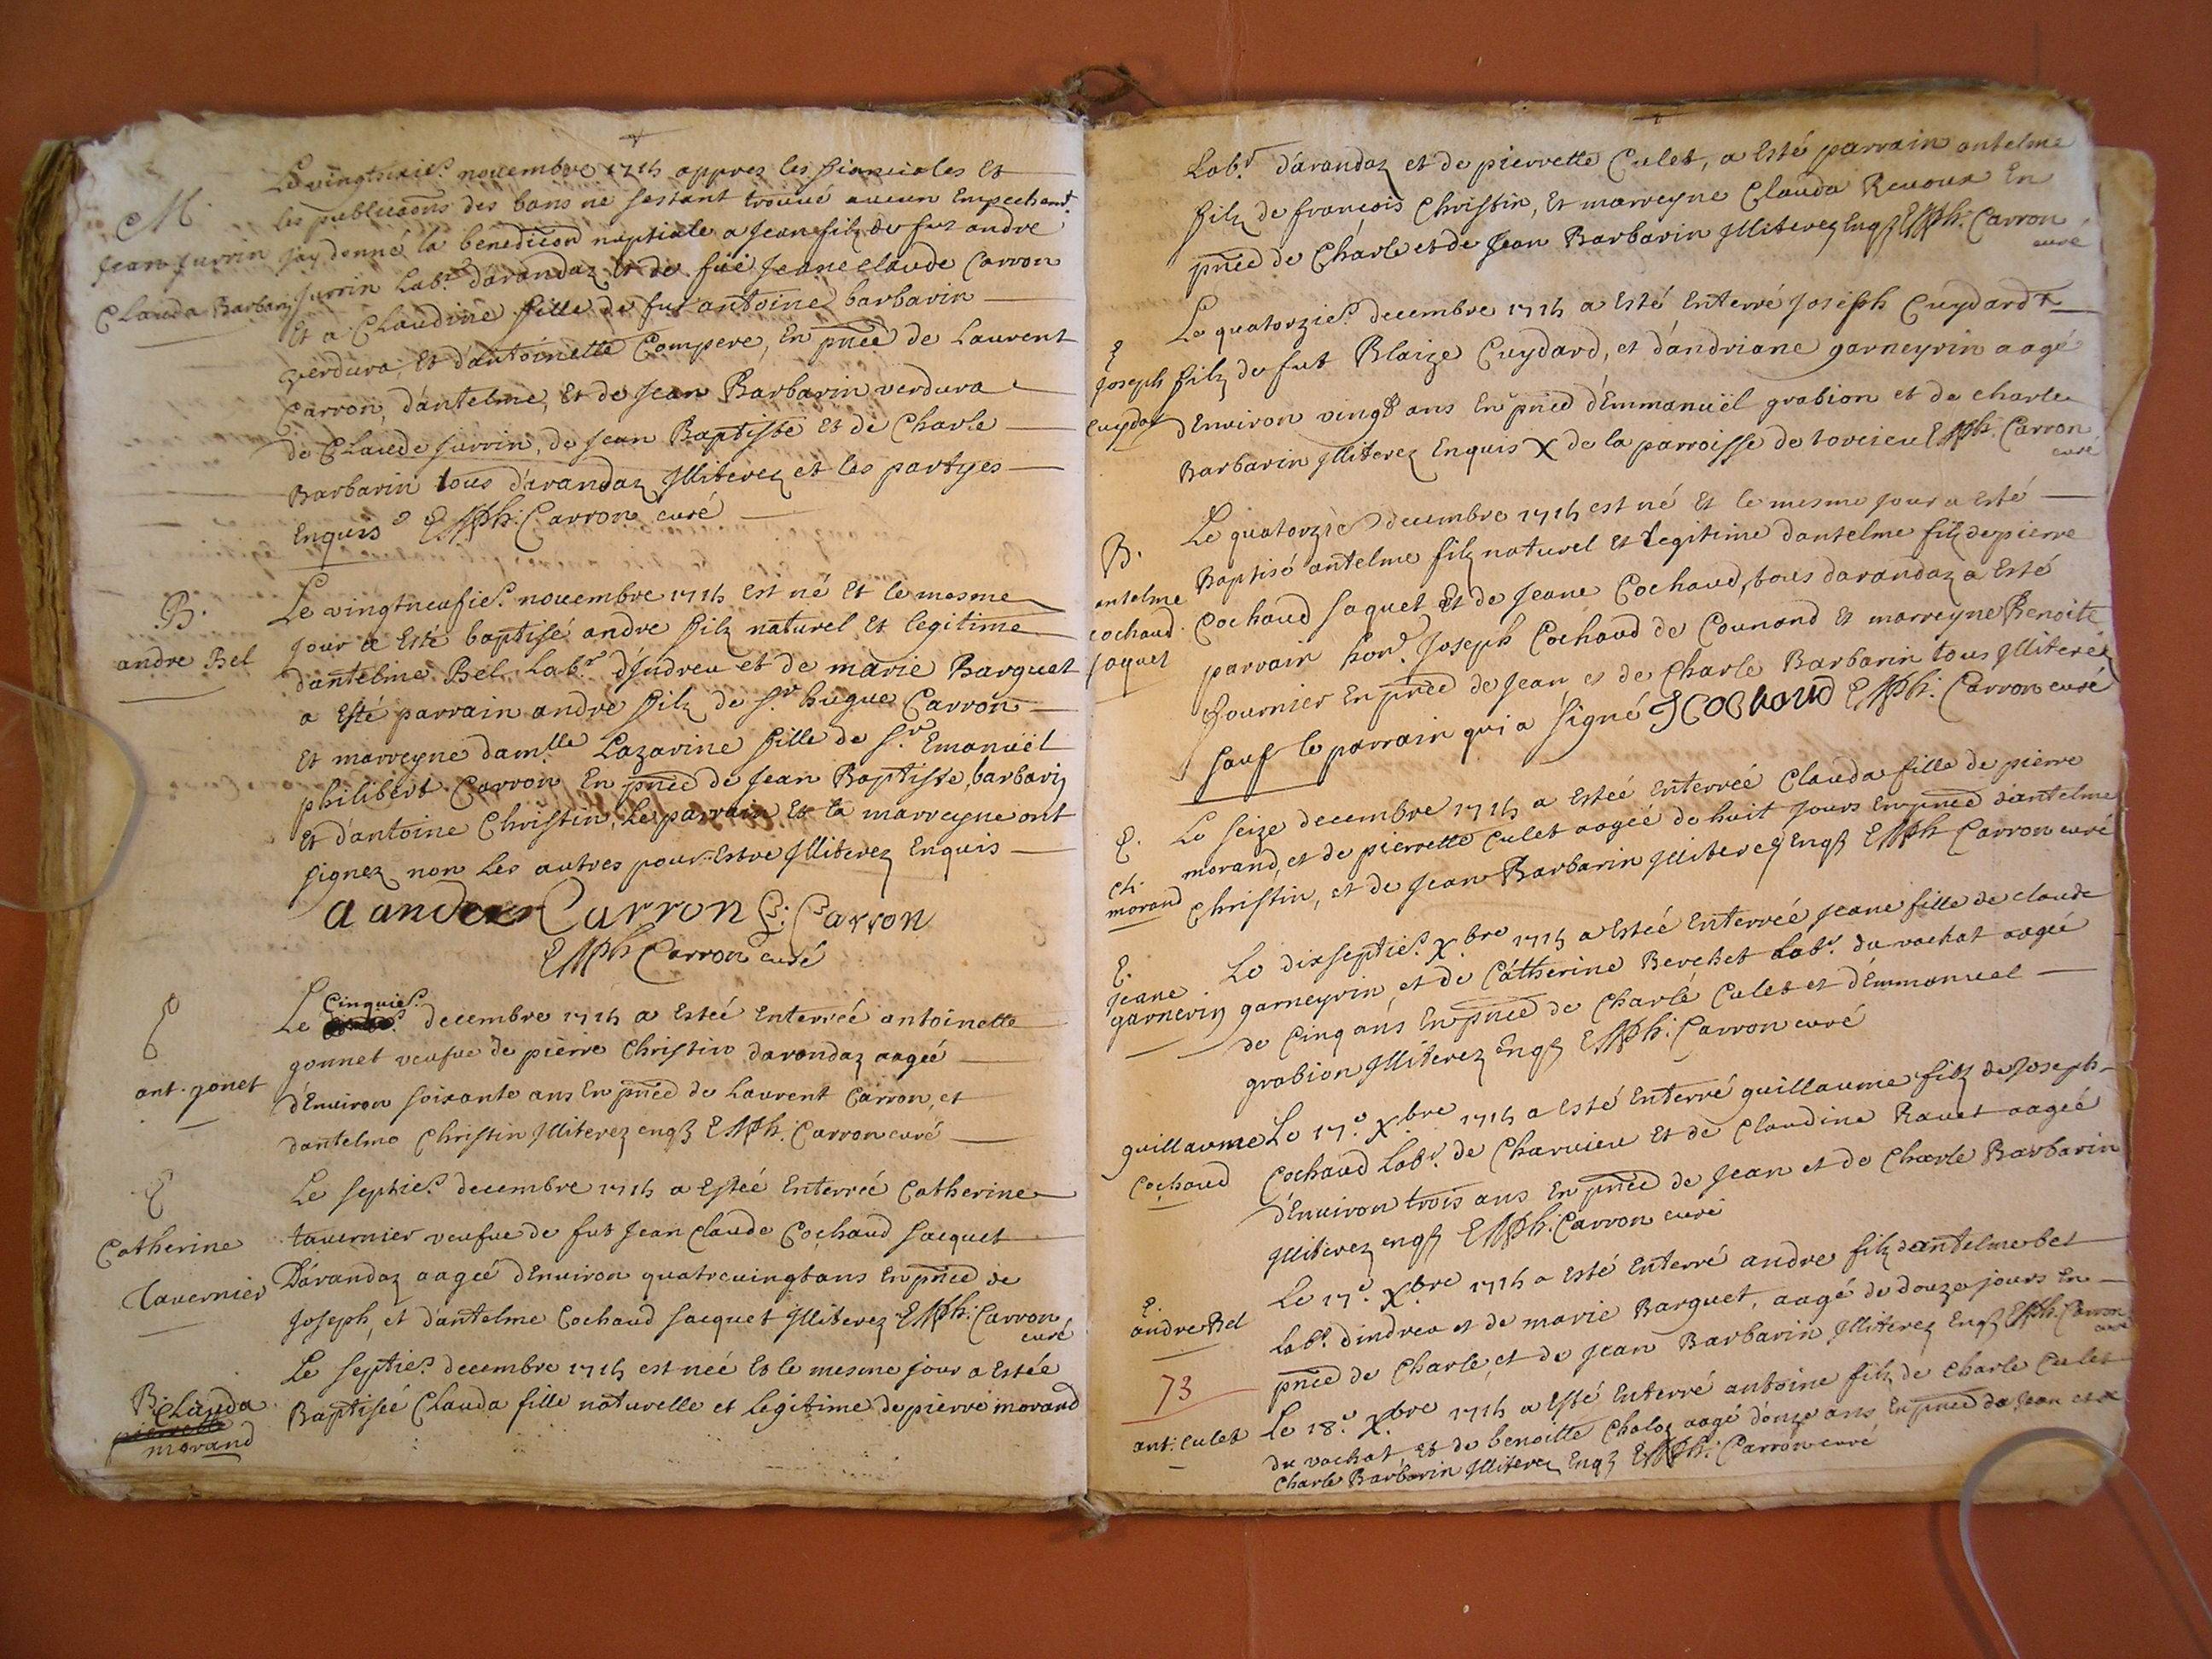 M.
Jean Jurrin
Clauda Barbarin
Le vingtsixie. novembre 1714 appres les fianciales Et
les publicaons des bans ne sestant trouué aucun Empechemt.
jay donné la benediction nuptiale a Jean filz de fut andre
Jurrin Labr. darandaz et de fue Jeane claude Carron
Et a Claudine fille de fut antoine barbarin
verdura, Et dantoinette Compere, En pnce de Laurent
Carron, dantelme, Et de Jean Barbarin verdura
de Claude Jurrin, de Jean Baptiste Et de Charle
Barbarin tous darandaz Jlliterez et les partyes
Enquis EMPh: Carron curé
B.
andre Bel
Le vingtneufie. nouembre 1714 est né Et le mesme
Jour a Esté baptisé andre filz naturel Et legitime
dantelme Bel Labr. djndreu et de marie Barguet
a Esté parrain andre filz de sr. hugue Carron
Et marreyne damlle Lazarine fille de sr. Emanuël
philibert Carron En pnce de Jean Baptiste barbarin
Et dantoine Christin, Le parrain Et la marreyne ont
signez non les autres pour Estre Jlliterez Enquis
Carron Carron
EMPh Carron curé
E
ant. gonet
Cinquie.
Le decembre 1714 a Estéé Enterréé antoinette
gonnet veufue de pierre Christin darandaz aagéé
dEnuiron soixante ans En pnce de Laurent Carron, et
dantelme Christin Jlliterez enqs EMPh: Carron curé
E
Catherine
Tauernier
Le septie. decembre 1714 a Estéé Enterréé Catherine
tauernier veufue de fut Jean Claude Cochaud Jacquet
Darandaz aagéé dEnuiron quatreuingt ans En pnce de
Joseph, et dantelme Cochaud Jacquet Jlliterez EMPh: Carron
curé
B. Clauda
pierrette
morand
Le septie. decembre 1714 est néé Et le mesme jour a Estée
Baptiséé Clauda fille naturelle et legitime de pierre morand
Labr. darandaz et de pierrette Culet, a Esté parrain antelme
filz de francois Christin, Et marreyne Clauda Reuoux En
pnce de Charle et de Jean Barbarin Jlliterez Enqs EMPh: Carron
curé
E
Joseph
Cuydard
Le quatorzie. decembre 1714 a Esté Enterré Joseph Cuydard
filz de fut Blaize Cuydard, et dandriane garneyrin aagé
dEnuiron vingt ans En pnce dEmmanuël grabion et de charle
Barbarin Jlliterez Enquis X de la parroisse de torcieu EMPh: Carron
curé
B.
antelme
cochaud
jaquet
Le quatorzie decembre 1714 est né Et le mesme jour a Esté
Baptisé antelme filz naturel et Legitime dantelme filz de pierre
Cochaud Jaquet Et de Jeane Cochaud, tous darandaz a Esté
parrain honr. Joseph Cochaud de Counand Et marreyne Benoite
fournier En pnce de Jean et de Charle Barbarin tous Jlliterez
sauf le parrain qui a signé J Cochaud EMPh: Carron curé
E.
Cl.
morand
Le seize decembre 1714 a Estéé Enterréé Clauda fille de pierre
morand, et de pierrette Culet aagéé de huit jours En pnce dantelme
Christin, et de Jean Barbarin Jlliterez Enqs EMPh Carron curé
E.
Jeane
garnerin
Le dixseptie. Xbre 1714 a Estéé Enterréé Jeane fille de claude
garneyrin, et de Catherine Berchet Labr. du vachat aagéé
de Cinq ans En pnce de Charle Culet et dEmmanuel
grabion Jlliterez Enqs EMPh: Carron curé
guillaume
Cochaud
Le 17.e Xbre 1714 a Esté Enterré guillaume filz de Joseph
Cochaud Labr. de Charuieu Et de Claudine Rauet aagéé
dEnuiron trois ans En pnce de Jean et de Charle Barbarin
Jlliterez enqs EMPh: Carron curé
E.
andre Bel
Le 17.e Xbre 1714 a Esté Enterré andre filz dantelme bel
Labr. dindreu et de marie Barguet, aagé de douze jours En
pnce de Charle, et de Jean Barbarin Jlliterez Enqs EMPh: Carron
curé
73
ant. Culet
Le 18.e Xbre 1714 a Esté Enterré antoine filz de Charle Culet
du vachat, Et de benoitte Chaloz aagé donze ans En pnce de Jean et
Charle Barbarin Jlliterez Enqs EMPh: Carron curé